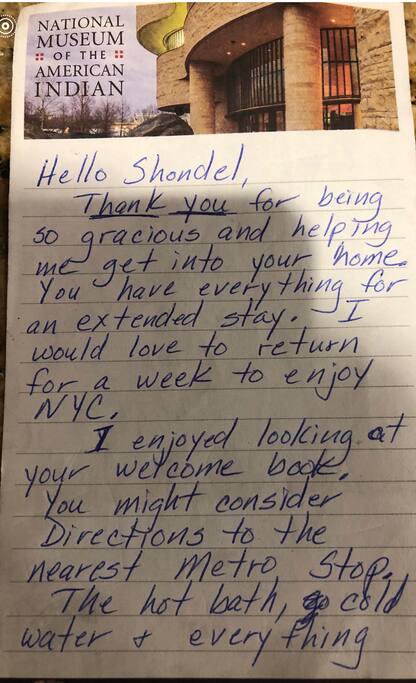 NATIONAL
MUSEUM
OF THE
AMERICAN
INDIAN
Hello Shondel,
Thank you for being
so gracious and helping
me get into your home.
You have everything for
an extended stay. I
would love to return
for a week to enjoy
NYC.
I enjoyed looking at
your welcome book.
You might consider
Directions to the
nearest Metro Stop.
The hot bath, cold
water & everything